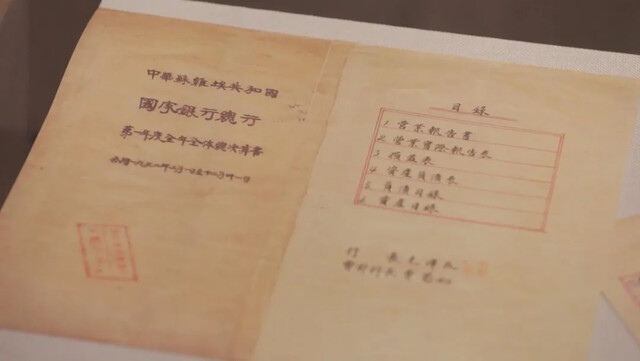 中華蘇維埃共和國
國家銀行總行
第一年度全年全体總決算書
公曆一九三二年二月一日至十二月卅一日
目錄
1. 營業報告書
2. 營業實際報告表
3. 損益表
4. 資產負債表
5. 負債目錄
6. 資產目錄
行 長毛澤民
會計科長曹菊如